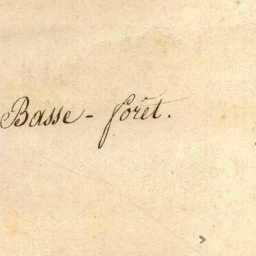 Basse - forêt.